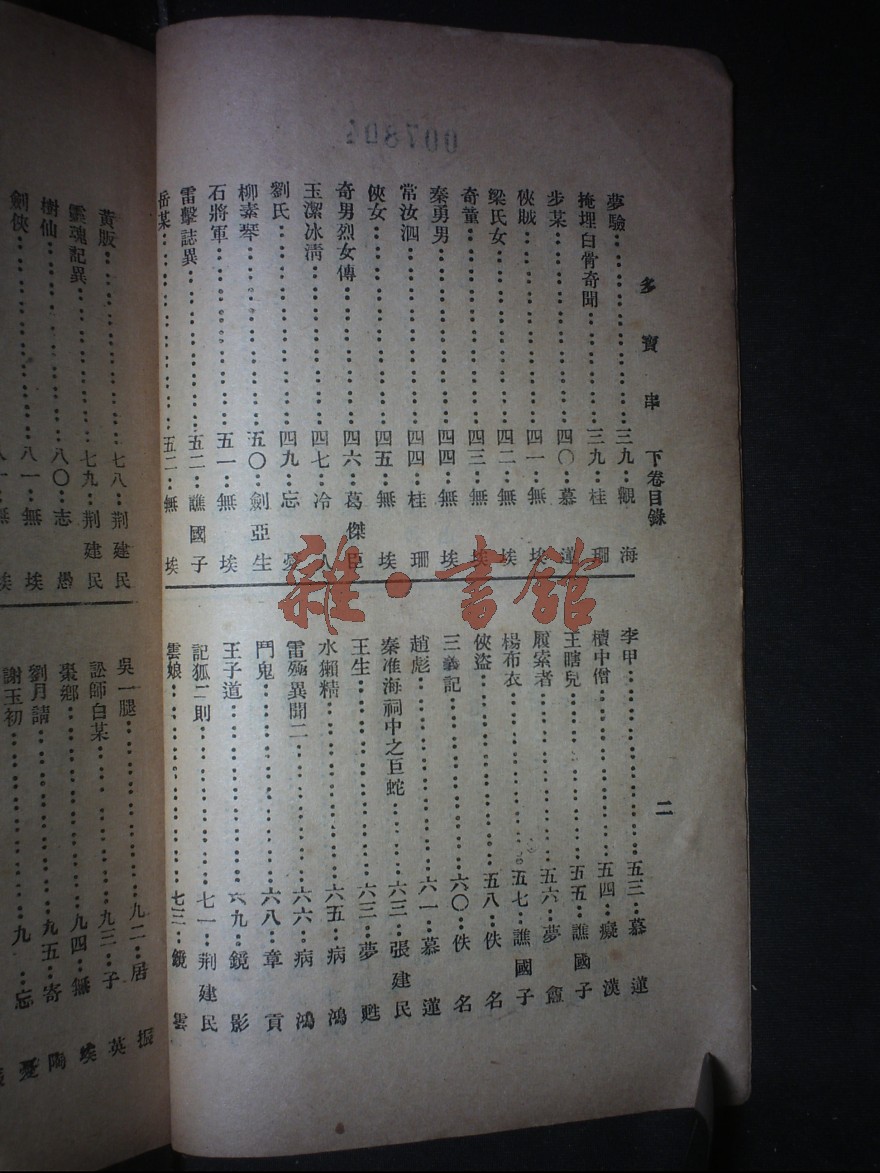 007804
多寶串 下卷目錄 二
夢驗 三九 觀海
掩埋白骨奇聞 三九 桂珊
步某 四〇 慕蓮
俠賊 四一 無埃
梁氏女 四二 無埃
奇董 四三 無埃
秦勇男 四四 無埃
常汝泗 四四 桂珊
俠女 四五 無埃
奇男烈女傳 四六 葛傑臣
玉潔冰淸 四七 冷八
劉氏 四九 忘憂
柳素琴 五〇 劍亞生
石將軍 五一 無埃
雷擊誌異 五二 譙國子
岳某 五二 無埃
李甲 五三 慕蓮
櫝中僧 五四 癡漢
王瞎兒 五五 譙國子
屨索者 五六 夢
楊布衣 五七 譙國子
俠盜 五八 佚名
三義記 六〇 佚名
趙彪 六一 慕蓮
秦淮海祠中之巨蛇 六三 張建民
王生 六三 夢甦
水獺精 六五 病鴻
雷殛異聞二 六六 病鴻
鬥鬼 六八 章貢
王子道 六九 鏡影
記狐二則 七一 荆建民
雲娘 七三 鏡雲
黃販 七八 荆建民
靈魂記異 七九 荆建民
樹仙 八〇 志愚
劍俠 八一 無埃
吳一腿 九二 居振
訟師白某 九三 子英
棗鄉 九四 無埃
劉月請 九五 寄陶
謝玉初 九 忘憂
雜·書館